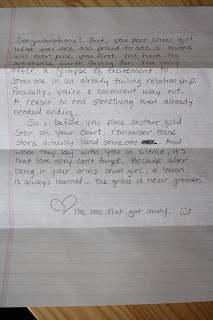 Congratulations! But, you poor cruel girl
what you are too proud to see is noone
will ever pick you first. You have no
substance worth falling for. You only
offer a glimpse of excitement to
someone in an already failing relationship.
Basically, you're a convenient way out.
A reason to end something that already
needed ending.
So, before you place another gold
star on your chart, remember those
stars actually loved someone. And
when they lay with you in silence, it's
that love they can't forget. Because after
being in your arms cruel girl, a lesson
is always learned... the grass is never greener.
The one that got away...